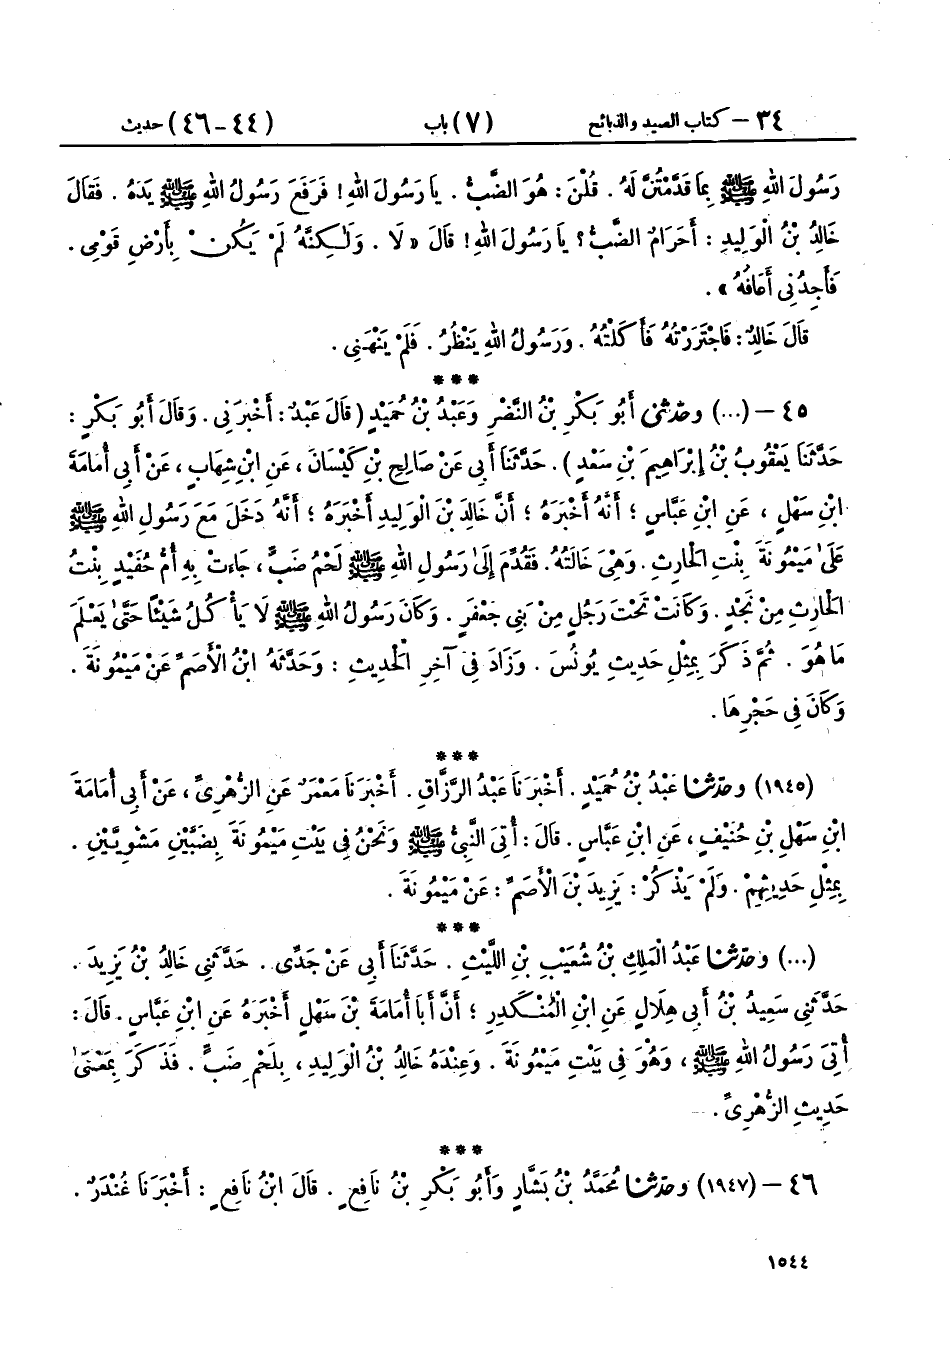 ٣٤ – كتاب الصيد والذبائح (٧) باب (٤٤-٤٦) حديث
رَسُولَ اللهِ ﷺ بِمَا قَدَّمْتُنَّ لَهُ . قُلْنَ : هُوَ الضَّبُّ . يَا رَسُولَ اللهِ ! فَرَفَعَ رَسُولُ اللهِ ﷺ يَدَهُ . فَقَالَ
خَالِدُ بْنُ الْوَلِيدِ : أَحَرَامٌ الضَّبُّ ؟ يَا رَسُولَ اللهِ ! قَالَ « لَا . وَلٰكِنَّهُ لَمْ يَكُنْ بِأَرْضِ قَوْمِى .
فَأَجِدُنِى أَعَافُهُ » .
قَالَ خَالِدٌ : فَاجْتَرَرْتُهُ فَأَكَلْتُهُ . وَرَسُولُ اللهِ يَنْظُرُ . فَلَمْ يَنْهَنِى .
***
٤٥ – (...) وحَدَّثَنِى أَبُو بَكْرِ بْنُ النَّضْرِ وَعَبْدُ بْنُ حُمَيْدٍ ( قَالَ عَبْدٌ : أَخْبَرَنِى . وَقَالَ أَبُو بَكْرٍ :
حَدَّثَنَا يَعْقُوبُ بْنُ إِبْرَاهِيمَ بْنِ سَعْدٍ ) . حَدَّثَنَا أَبِى عَنْ صَالِحِ بْنِ كَيْسَانَ ، عَنِ ابْنِ شِهَابٍ ، عَنْ أَبِى أُمَامَةَ
ابْنِ سَهْلٍ ، عَنِ ابْنِ عَبَّاسٍ ؛ أَنَّهُ أَخْبَرَهُ ؛ أَنَّ خَالِدَ بْنَ الْوَلِيدِ أَخْبَرَهُ ؛ أَنَّهُ دَخَلَ مَعَ رَسُولِ اللهِ ﷺ
عَلَىٰ مَيْمُونَةَ بِنْتِ الْحَارِثِ . وَهِىَ خَالَتُهُ . فَقُدِّمَ إِلَىٰ رَسُولِ اللهِ ﷺ لَحْمُ ضَبٍّ ، جَاءَتْ بِهِ أُمُّ حُفَيْدٍ بِنْتُ
الْحَارِثِ مِنْ نَجْدٍ . وَكَانَتْ تَحْتَ رَجُلٍ مِنْ بَنِى جَعْفَرٍ . وَكَانَ رَسُولُ اللهِ ﷺ لَا يَأْكُلُ شَيْئًا حَتَّىٰ يَعْلَمَ
مَا هُوَ . ثُمَّ ذَكَرَ بِمِثْلِ حَدِيثِ يُونُسَ . وَزَادَ فِى آخِرِ الْحَدِيثِ : وَحَدَّثَهُ ابْنُ الْأَصَمِّ عَنْ مَيْمُونَةَ .
وَكَانَ فِى حَجْرِهَا .
***
(١٩٤٥) وحَدَّثَنَا عَبْدُ بْنُ حُمَيْدٍ . أَخْبَرَنَا عَبْدُ الرَّزَّاقِ . أَخْبَرَنَا مَعْمَرٌ عَنِ الزُّهْرِىِّ ، عَنْ أَبِى أُمَامَةَ
ابْنِ سَهْلِ بْنِ حُنَيْفٍ ، عَنِ ابْنِ عَبَّاسٍ . قَالَ : أُتِىَ النَّبِىُّ ﷺ وَنَحْنُ فِى بَيْتِ مَيْمُونَةَ بِضَبَّيْنِ مَشْوِيَّيْنِ .
بِمِثْلِ حَدِيثِهِمْ . وَلَمْ يَذْكُرْ : يَزِيدَ بْنَ الْأَصَمِّ : عَنْ مَيْمُونَةَ .
***
(...) وحَدَّثَنَا عَبْدُ الْمَلِكِ بْنُ شُعَيْبِ بْنِ اللَّيْثِ . حَدَّثَنَا أَبِى عَنْ جَدِّى . حَدَّثَنِى خَالِدُ بْنُ يَزِيدَ .
حَدَّثَنِى سَعِيدُ بْنُ أَبِى هِلَالٍ عَنِ ابْنِ الْمُنْكَدِرِ ؛ أَنَّ أَبَا أُمَامَةَ بْنَ سَهْلٍ أَخْبَرَهُ عَنِ ابْنِ عَبَّاسٍ . قَالَ :
أُتِىَ رَسُولُ اللهِ ﷺ ، وَهُوَ فِى بَيْتِ مَيْمُونَةَ . وَعِنْدَهُ خَالِدُ بْنُ الْوَلِيدِ ، بِلَحْمِ ضَبٍّ . فَذَكَرَ بِمَعْنَىٰ
حَدِيثِ الزُّهْرِىِّ .
***
٤٦ – (١٩٤٧) وحَدَّثَنَا مُحَمَّدُ بْنُ بَشَّارٍ وَأَبُو بَكْرِ بْنُ نَافِعٍ . قَالَ ابْنُ نَافِعٍ : أَخْبَرَنَا غُنْدَرٌ .
١٥٤٤